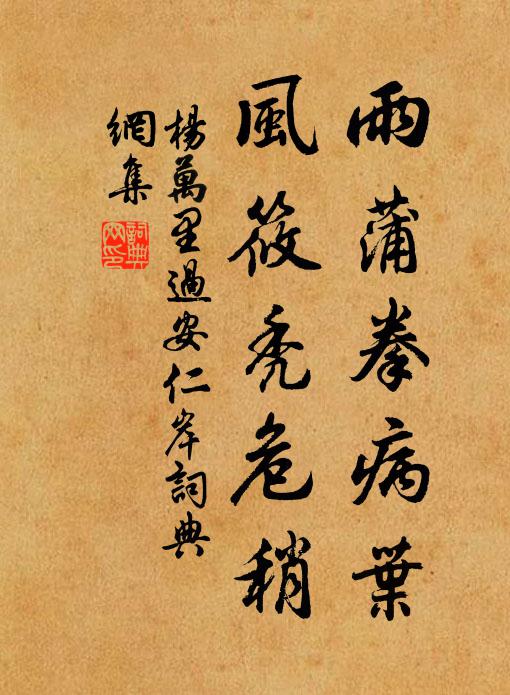 雨蒲拳病葉
風筱禿危稍
楊萬里過安仁岸詞典
網集
詞典網印